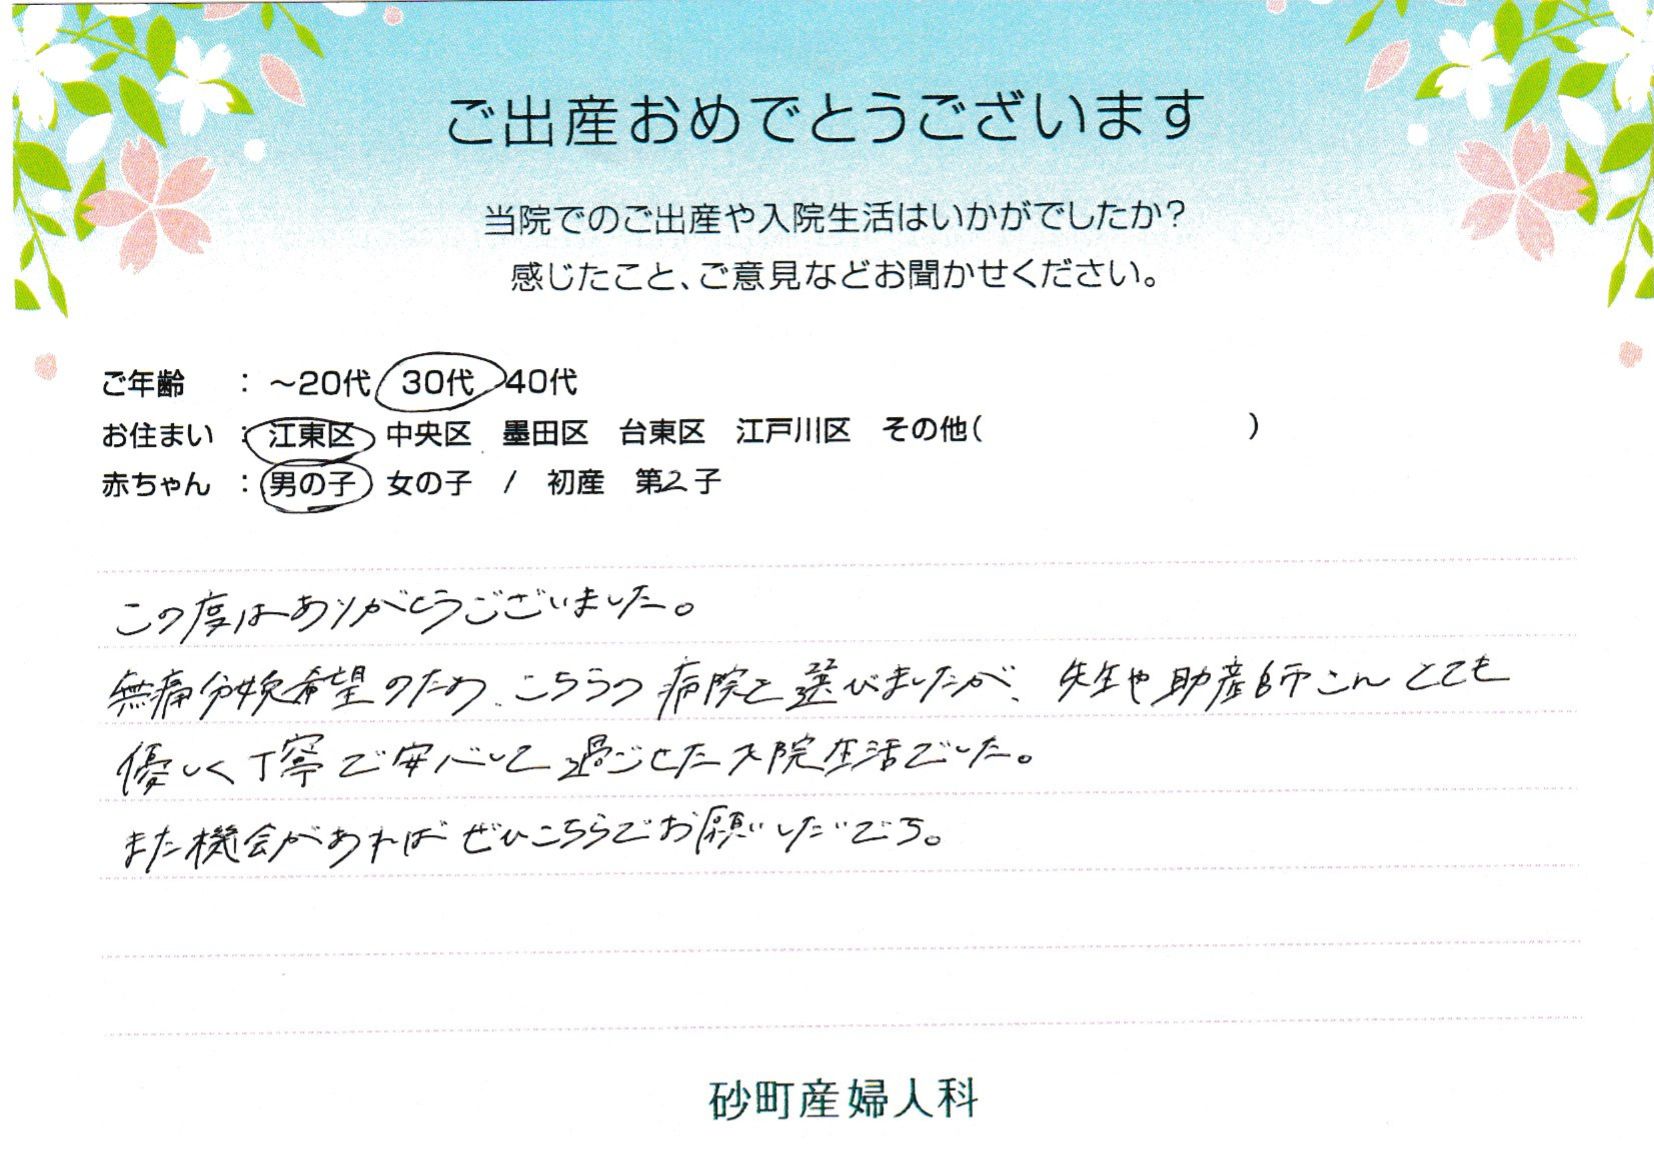 ご出産おめでとうございます
当院でのご出産や入院生活はいかがでしたか?
感じたこと、ご意見などお聞かせください。
ご年齢 : ～20代 30代 40代
お住まい : 江東区 中央区 墨田区 台東区 江戸川区 その他( )
赤ちゃん : 男の子 女の子 / 初産 第2子
この度はありがとうございました。
無痛分娩希望のため、こちらの病院を選びましたが、先生や助産師さんとても
優しく丁寧で安心して過ごせた入院生活でした。
また機会があればぜひこちらでお願いしたいです。
砂町産婦人科